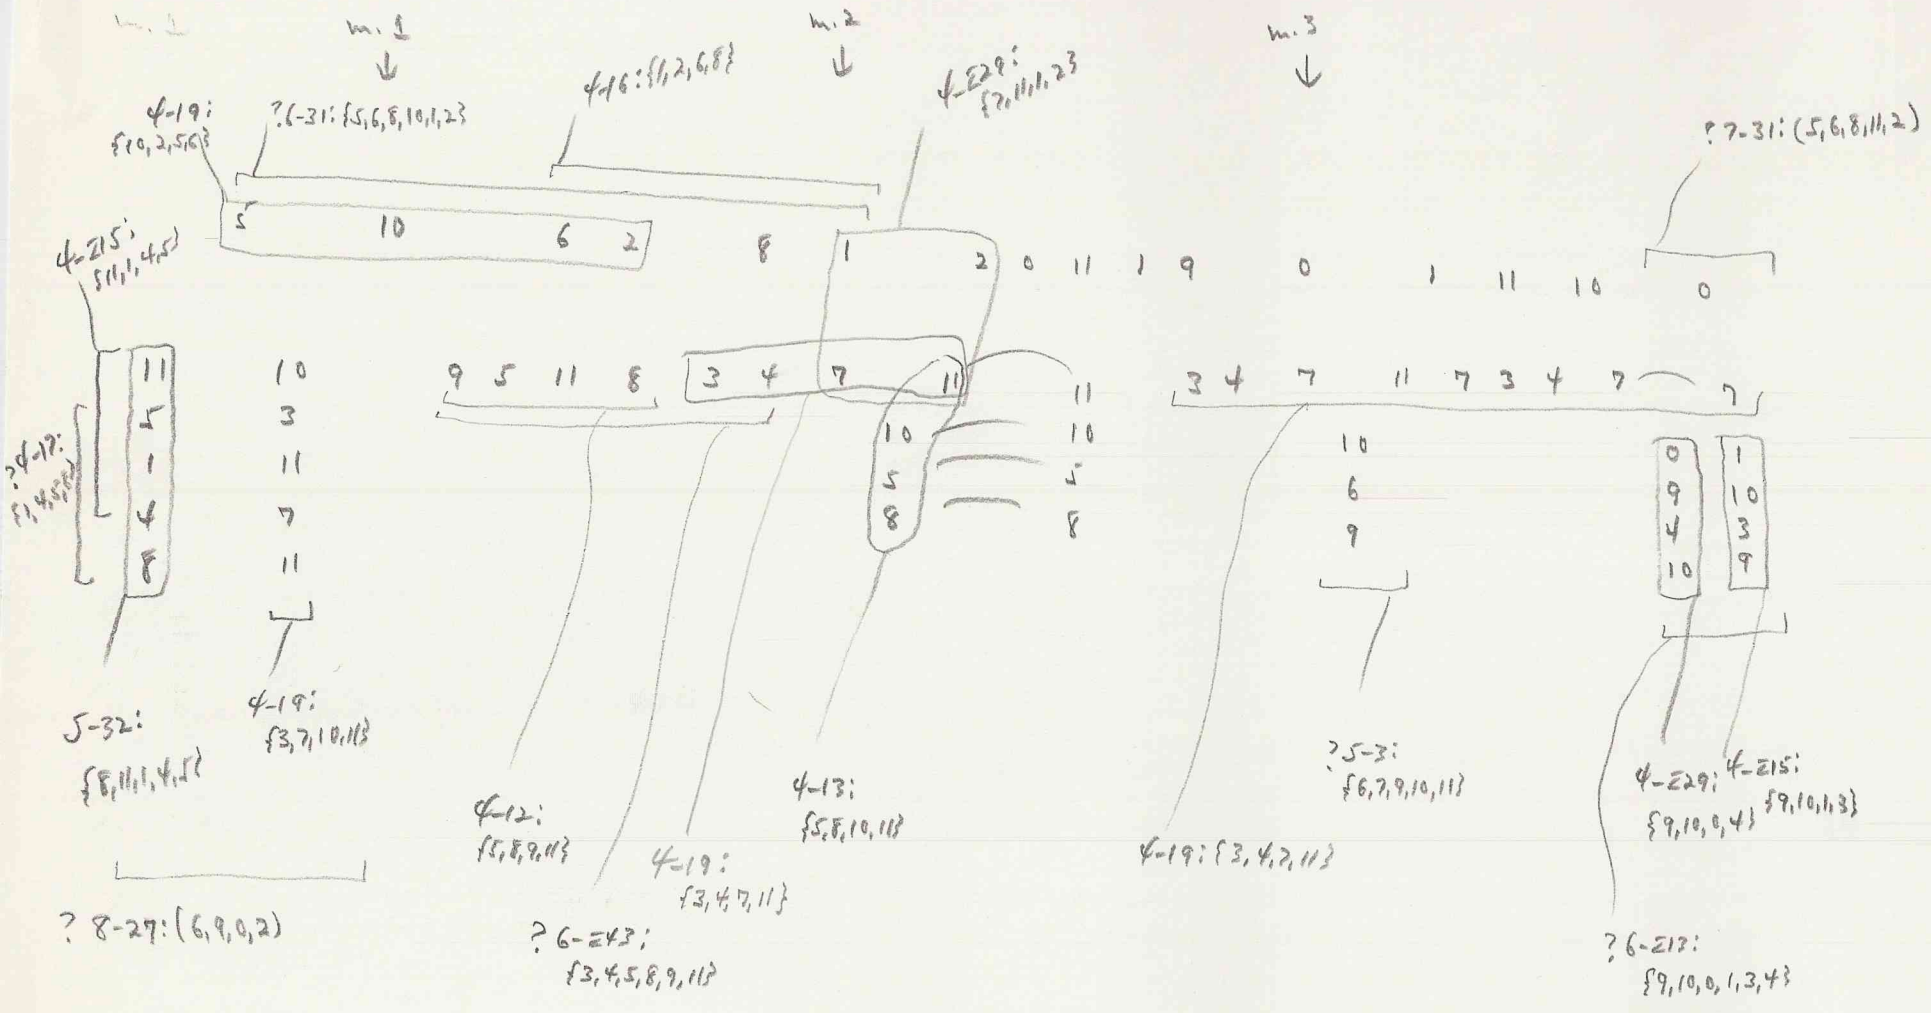 m. 1
m. 1
m. 2
m. 3
4-19:
{10,2,5,6}
?6-31:{5,6,8,10,1,2}
4-16:{1,2,6,8}
4-Z29:
{7,11,1,2}
?7-31:(5,6,8,11,2)
4-Z15:
{11,1,4,5}
5 10 6 2 8 1 2 0 11 1 9 0 1 11 10 0
11 10 9 5 11 8 3 4 7 11 11 3 4 7 11 7 3 4 7 7
5 3 10 10 10 0 1
?4-17:
{1,4,5,8}
1 11 5 5 6 9 10
4 7 8 8 9 4 3
8 11 10 9
5-32:
{8,11,1,4,5}
4-19:
{3,7,10,11}
4-12:
{5,8,9,11}
4-19:
{3,4,7,11}
4-13:
{5,8,10,11}
4-19:{3,4,7,11}
?5-3:
{6,7,9,10,11}
4-Z29:
{9,10,0,4}
4-Z15:
{9,10,1,3}
? 8-27:(6,9,0,2)
? 6-Z43:
{3,4,5,8,9,11}
?6-Z13:
{9,10,0,1,3,4}